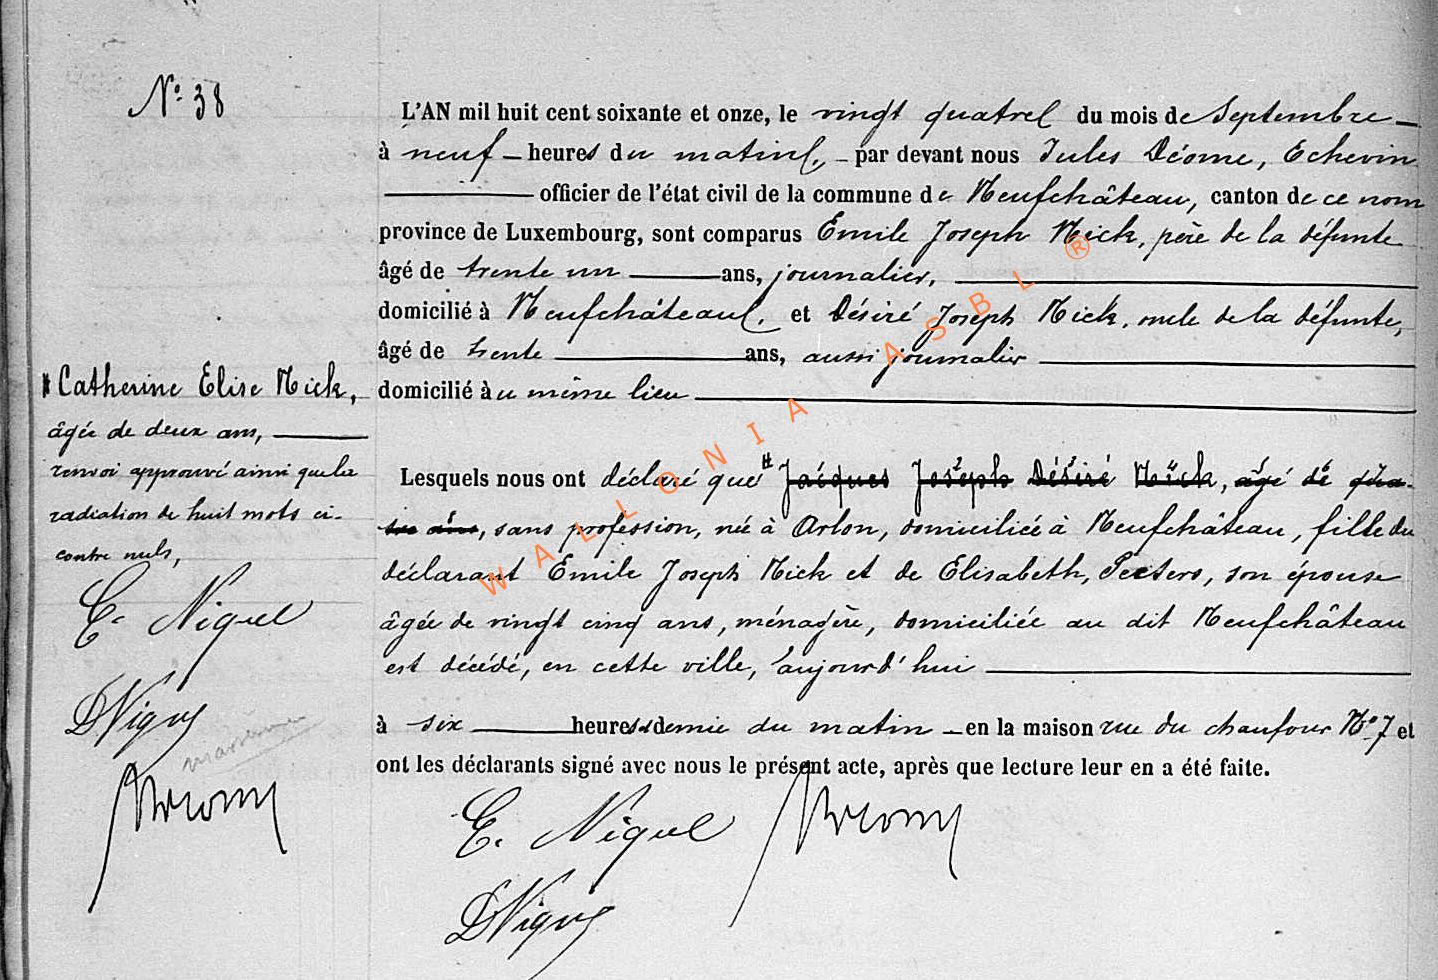 N° 38
L'AN mil huit cent soixante et onze, le vingt quatre du mois de Septembre
à neuf heures du matin, par devant nous Jules Déome, Echevin
officier de l'état civil de la commune de Neufchâteau, canton de ce nom
province de Luxembourg, sont comparus Emile Joseph Nick, père de la défunte
âgé de trente un ans, journalier,
domicilié à Neufchâteau, et Désiré Joseph Nick, oncle de la défunte,
âgé de trente ans, aussi journalier
domicilié au même lieu
Catherine Elise Nick,
âgée de deux ans,
renvoi approuvé ainsi que la
radiation de huit mots ci-
contre nuls,
E. Niquel
Lesquels nous ont déclaré que Jacques Joseph Désiré Nick, âgé de qua-
tre ans, sans profession, née à Arlon, domiciliée à Neufchâteau, fille du
déclarant Emile Joseph Nick et de Elisabeth, Peeters, son épouse
âgée de vingt cinq ans, ménagère, domiciliée au dit Neufchâteau
est décédé, en cette ville, aujourd'hui
à six heures demie du matin en la maison rue du chaufour N° 7 et
ont les déclarants signé avec nous le présent acte, après que lecture leur en a été faite.
E. Niquel
WALLONIA ASBL ®